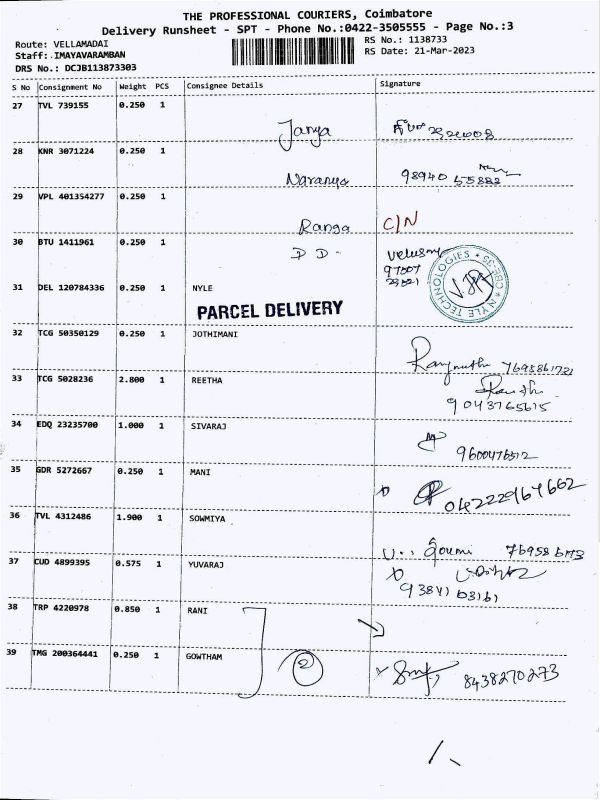 THE PROFESSIONAL COURIERS, Coimbatore
Delivery Runsheet - SPT - Phone No.:0422-3505555 - Page No.:3
Route: VELLAMADAI
RS No.: 1138733
Staff: IMAYAVARAMBAN
RS Date: 21-Mar-2023
DRS No.: DCJB113873303
S No Consignment No Weight PCS Consignee Details Signature
27 TVL 739155 0.250 1
Janya
28 KNR 3071224 0.250 1
Naranya 98940 55882
29 VPL 401354277 0.250 1
Ranga C/N
30 BTU 1411961 0.250 1
DD-
31 DEL 120784336 0.250 1 NYLE
NYLE TECHNOLOGIES * CBE-35 *
PARCEL DELIVERY
32 TCG 50350129 0.250 1 JOTHIMANI
33 TCG 5028236 2.800 1 REETHA
9043765615
34 EDQ 23235700 1.000 1 SIVARAJ
9600476512
35 GDR 5272667 0.250 1 MANI
04222967662
36 TVL 4312486 1.900 1 SOWMIYA
37 CUD 4899395 0.575 1 YUVARAJ
93841 63161
38 TRP 4220978 0.850 1 RANI
39 TMG 200364441 0.250 1 GOWTHAM
2
8438270273